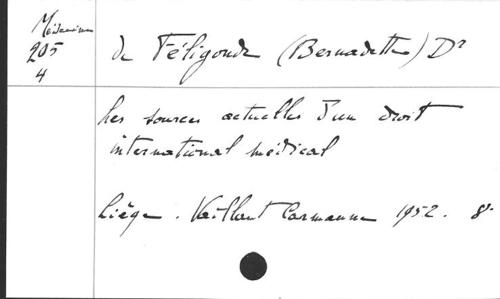 Médecine
205
4
de Féligonde (Bernadette) Dr
Les sources actuelles d'un droit
international médical
Liège. Vaillant Carmanne 1952. 8°